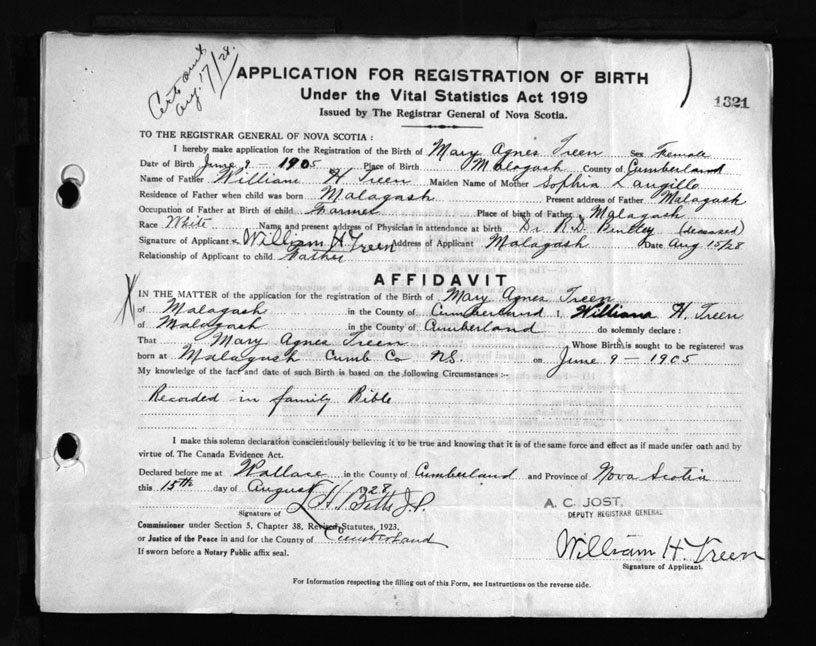 Aug. 17/28.
APPLICATION FOR REGISTRATION OF BIRTH
Under the Vital Statistics Act 1919
1321
Issued by The Registrar General of Nova Scotia.
TO THE REGISTRAR GENERAL OF NOVA SCOTIA :
I hereby make application for the Registration of the Birth of Mary Agnes Treen Sex Female
Date of Birth June 9 - 1905 Place of Birth Malagash County of Cumberland
Name of Father William H Treen Maiden Name of Mother Sophia Langille
Residence of Father when child was born Malagash Present address of Father Malagash
Occupation of Father at Birth of child Farmer Place of birth of Father Malagash
Race White Name and present address of Physician in attendance at birth Dr. R.D. (deceased)
Signature of Applicant William H Treen Address of Applicant Malagash Date Aug 15/28
Relationship of Applicant to child Father
AFFIDAVIT
IN THE MATTER of the application for the registration of the Birth of Mary Agnes Treen
of Malagash in the County of Cumberland I, William H. Treen
of Malagash in the County of Cumberland do solemnly declare :
That Mary Agnes Treen Whose Birth is sought to be registered was
born at Malagash Cumb Co N.S. on June 9 - 1905
My knowledge of the fact and date of such Birth is based on the following Circumstances :-
Recorded in family Bible
I make this solemn declaration conscientiously believing it to be true and knowing that it is of the same force and effect as if made under oath and by
virtue of The Canada Evidence Act.
Declared before me at Wallace in the County of Cumberland and Province of Nova Scotia
this 15th day of August 1928
A. C. JOST,
DEPUTY REGISTRAR GENERAL
Signature of H Betts J.P.
Commissioner under Section 5, Chapter 38, Revised Statutes, 1923.
or Justice of the Peace in and for the County of Cumberland
If sworn before a Notary Public affix seal.
William H. Treen
Signature of Applicant.
For Information respecting the filling out of this Form, see Instructions on the reverse side.